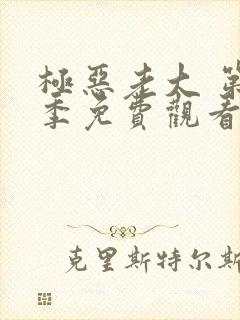 極惡老大 第
季免費觀看
克里斯特尔斯